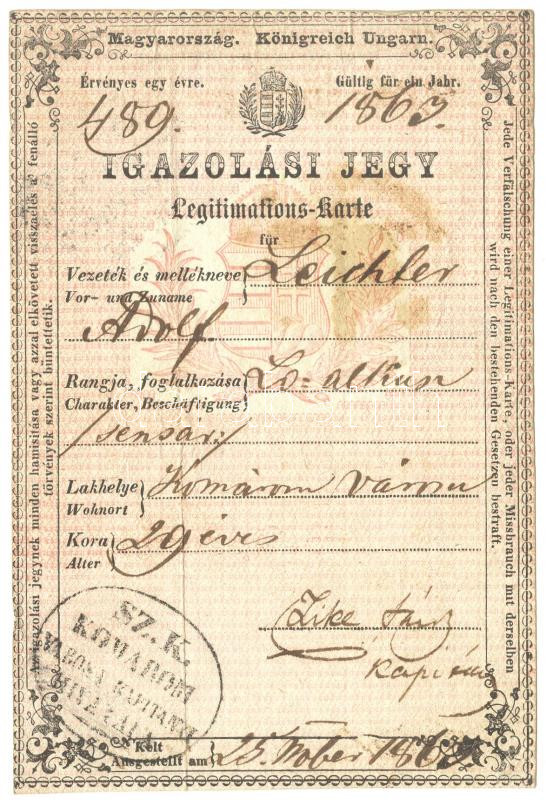 Magyarország. Königreich Ungarn.
Érvényes egy évre. Gültig für ein Jahr.
489. 1863.
IGAZOLÁSI JEGY
Legitimations-Karte
für
Vezeték és mellékneve
Vor- und Zuname
Leichter
Adolf.
Rangja, foglalkozása
Charakter, Beschäftigung
Ló-alkusz
/sensár:/
Lakhelye
Wohnort
Komárom városa
Kora
Alter
29 éves
kapitány
SZ. K.
KOMÁROM
VÁROSI KAPITÁNYI
HIVATAL
Kelt
Ausgestellt am
25. 186
Az igazolási jegynek minden hamisitása vagy azzal elkövetett visszaélés a' fenálló
törvények szerint büntettetik.
Jede Verfälschung einer Legitimations-Karte, oder jeder Missbrauch mit derselben
wird nach den bestehenden Gesetzen bestraft.